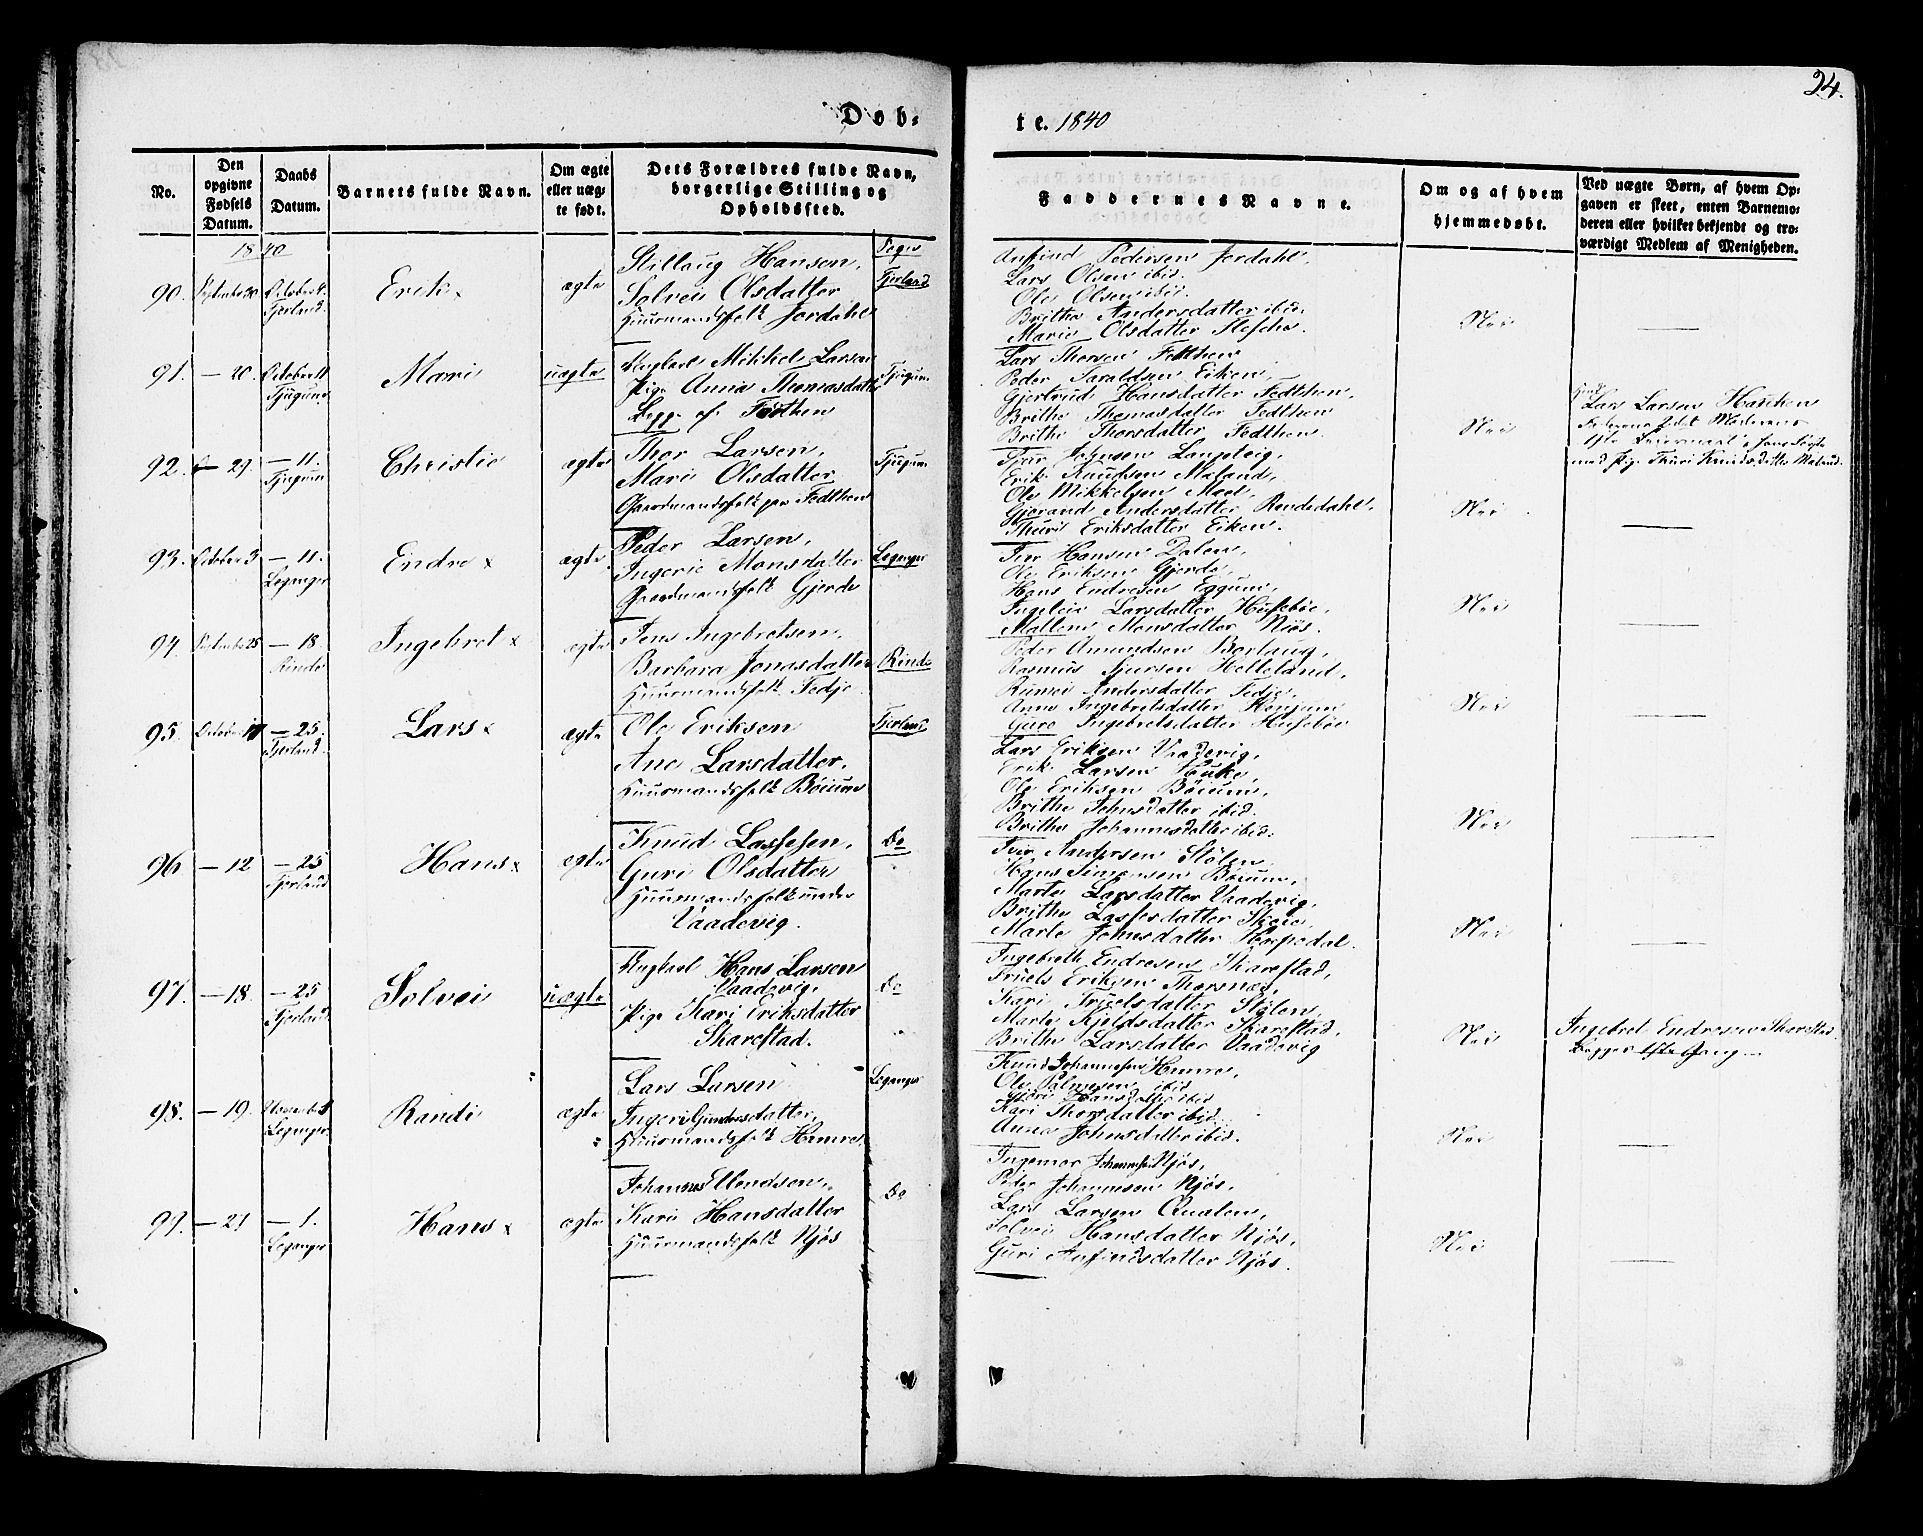 24.
Døb-
te. 1840
No.
Den opgivne Fødsels Datum.
Daabs Datum.
Barnets fulde Navn.
Om ægte eller uægte født.
Dets Forældres fulde Navn, borgerlige Stilling og Opholdssted.
Faddernes Navne.
Om og af hvem hjemmedøbt.
Ved uægte Børn, af hvem Opgaven er skeet, enten Barnemoderen eller hvilket bekjendt og troværdigt Medlem af Menigheden.
1840
Sogn
90. September 20 October 4. Fjerland. Erik × ægte
Stillaug Hansen,
Solvei Olsdatter
Huusmandsfolk Jordahl
Fjerland
Anfind Pedersen Jordahl,
Lars Olsen ibid.
Ole Olsen ibid.
Brithe Andersdatter ibid.
Marie Olsdatter
Nei
91. — 20. October 11 Tjugum Mari uægte
Ungkarl Mikkel Larsen
Pige Anna Thomasdatter
Begge af Fedthen
Tjugum
Lars Thorsen Fedthen
Peder Haraldsen Eiken,
Gjertrud Hansdatter Fedthen,
Brithe Thomasdatter Fedthen
Brithe Thorsdatter Fedthen.
Nei
Lars Larsen
med Pige Thuri Knudsdatter Maland.
92. — 29 — 11. Tjugum Christie ægte
Thor Larsen,
Mari Olsdatter
Gaardmandsfolk paa Fedthen
Tjugum
Erik Knudsen Maland,
Ole Mikkelsen Mæel,
Gjørand Andersdatter Rendedahl,
Thuri Eriksdatter Eiken.
Nei
93. October 3 — 11. Leganger Endre × ægte
Peder Larsen,
Ingerie Monsdatter
Gaardmandsfolk Gjerde
Leganger
Iver Hansen Dalen,
Ole Eriksen Gjerde,
Hans Endresen Eggum,
Ingeleiv Larsdatter Husebøe,
Mallene Monsdatter Njøs.
Nei
94. September 25 — 18. Rinde Ingebret × ægte
Jens Ingebretsen,
Barbara Jonasdatter
Huusmandsfolk Fedje
Rinde
Peder Amundsen Borlaug,
Rasmus Sjursen Helleland,
Andersdatter Fedje,
Anna Ingebretsdatter
Guro Ingebretsdatter Husebøe
Nei
95. October 17 — 25. Fjerland. Lars × ægte
Ole Eriksen
Ane Larsdatter,
Huusmandsfolk Bøium
Fjerland
Lars Eriksen Vaadevig,
Erik Larsen Huke,
Ole Eriksen Bøium,
Brithe Johnsdatter ibid.
Brithe Johannesdatter ibid.
Nei
96 — 12 — 25 Fjerland Hans × ægte
Knud Lassesen,
Guri Olsdatter
Huusmandsfolk under
Vaadevig.
Do
Iver Andersen Stølen,
Hans Simensen Bøium,
Marte Larsdatter Vaadevig,
Brithe Lassesdatter Skeie,
Marte Johnsdatter Horpedal.
Nei
97. — 18. — 25 Fjerland Solvei uægte
Ungkarl Hans Larsen
Vaadevig,
Pige Kari Eriksdatter
Skarestad.
Do
Ingebreth Endresen Skarestad,
Truels Eriksen
Kari Truelsdatter Stølen,
Marte Kjeldsdatter Skarestad,
Brithe Larsdatter Vaadevig
Nei
Ingebret Endresen Skarestad.
Begges 1ste Gang
98. — 19. November 1 Leganger. Randi ægte
Lars Larsen
Ingeri Gundersdatter,
Huusmandsfolk Hamre.
Leganger
Knud Johannesen Hamre,
Ole ibid
Hansdatter ibid
Kari Thorsdatter ibid.
Anna Johnsdatter ibid.
Nei
99. — 29 — 1. Leganger Hans × ægte
Johannes Ellendsen,
Kari Hansdatter
Huusmandsfolk Njøs
Do
Ingemar Johannesen Njøs,
Peder Johannesen Njøs,
Lars Larsen Qualen,
Solvei Hansdatter Njøs,
Guri Anfindsdatter Njøs.
Nei